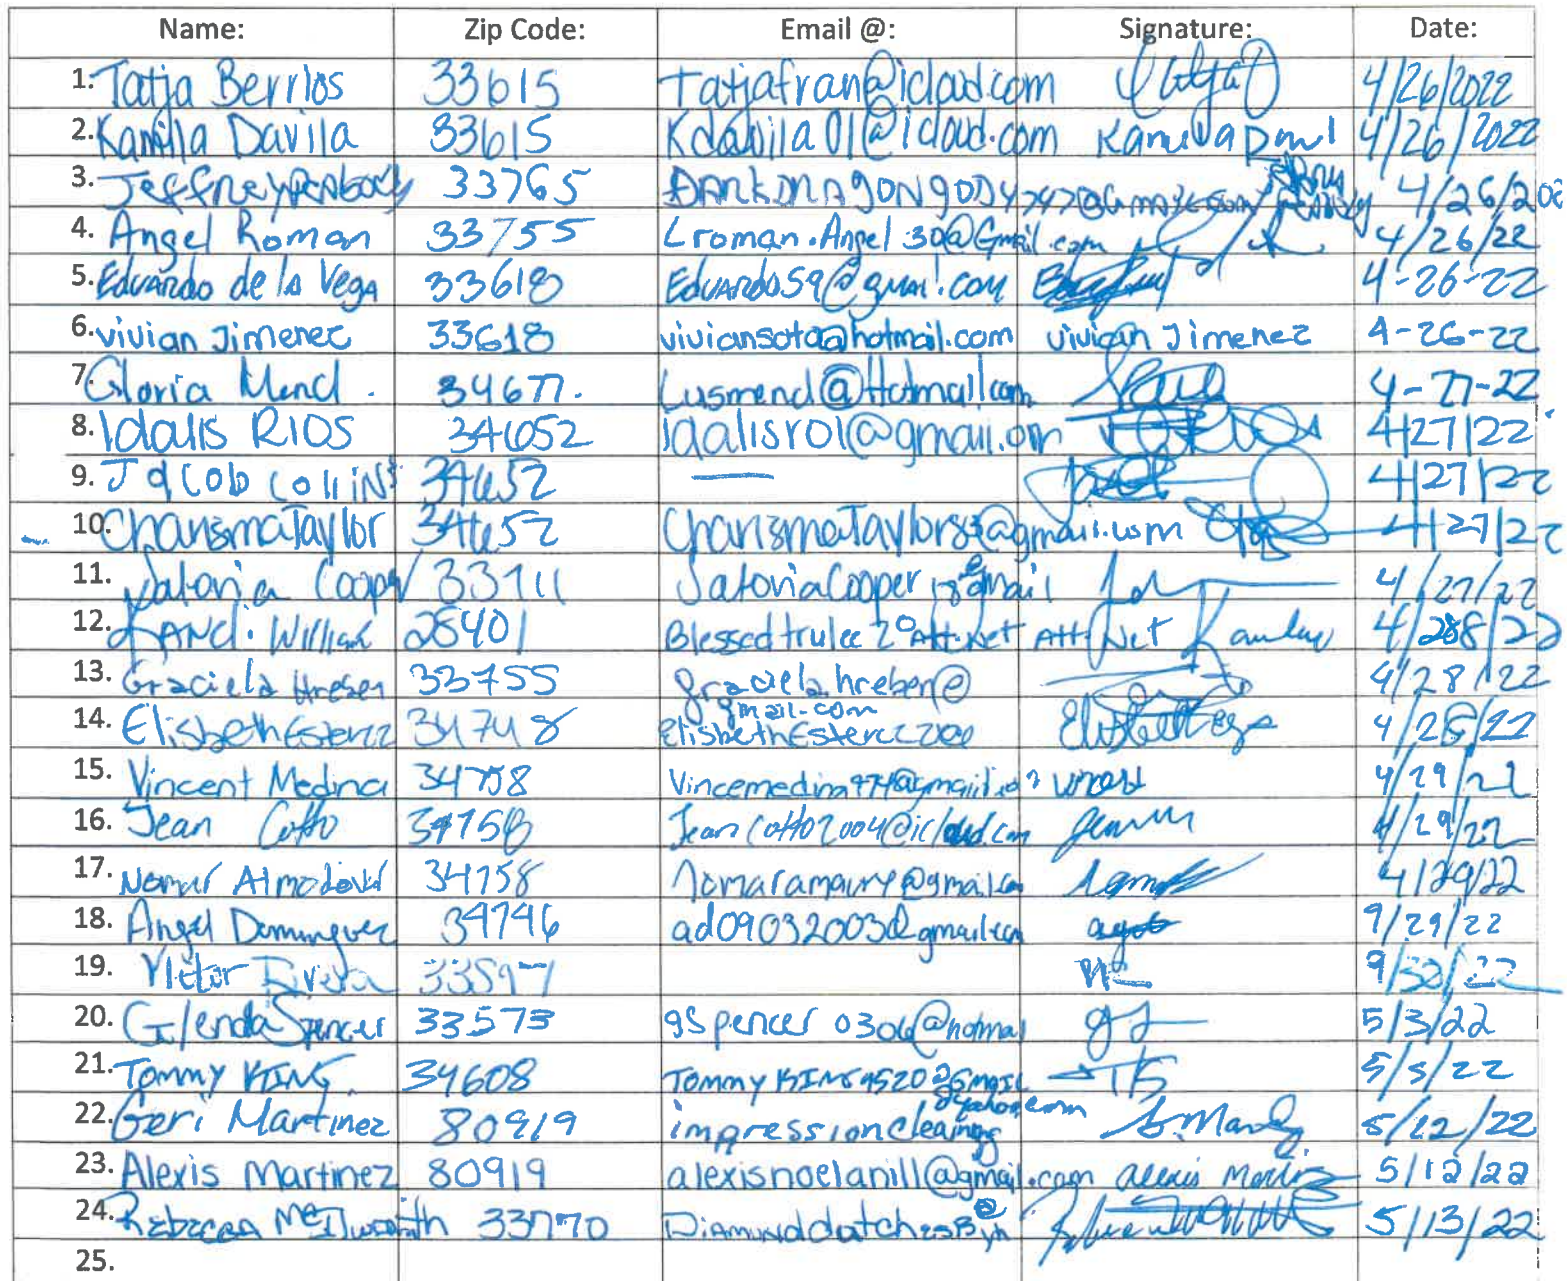 Name: Zip Code: Email @: Signature: Date:
1. Tatja Berrios 33615 Tatjafran@icloud.com 4/26/2022
2. Kamilla Davila 33615 Kdavila01@icloud.com 4/26/2022
3. Jeffrey Peabody 33765 4/26/202
4. Angel Roman 33755 Lroman.Angel30@Gmail.com 4/26/22
5. Eduardo de la Vega 33618 Eduardo59@gmai.com 4-26-22
6. vivian Jimenez 33618 viviansoto@hotmail.com vivian Jimenez 4-26-22
7. Gloria Mend. 34677. Lusmend@Hotmail.com 4-27-22
8. Idalis RIOS 34652 Idalisr01@gmail.om 4/27/22
9. Jacob Collins 34652 — 4/27/22
10. Charisma Taylor 34652 4/27/22
11. Satoria Cooper 33711 4/27/22
12. 28401 Att.Net 4/28/22
13. Graciela Hreben 33755 gracielahreben@
gmail.com 4/28/22
14. Elisbeth Esterez 34748 4/28/22
15. Vincent Medina 34758 4/29/22
16. Jean Cotto 34758 JeanCotto2004@icloud.com 4/29/22
17. Nomar Almodovar 34758 4/29/22
18. Angel Dominguez 34746 ad09032003@gmail.com 9/29/22
19. Victor Rivera 33597 9/30/22
20. Glenda Spencer 33573 gspencer0306@hotmai 5/3/22
21. Tommy KING 34608 TommyKING9520@Gmail 5/5/22
22. Geri Martinez 80919 impressioncleaning
@yahoo.com 5/12/22
23. Alexis Martinez 80919 alexisnoelanill@gmail.com Alexis Martinez 5/12/22
24. Rebecca 33770 5/13/22
25.